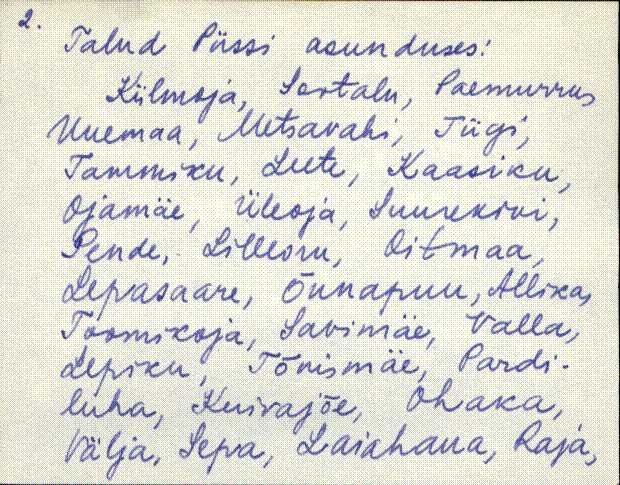 2.
Talud Püssi asunduses:
Külmoja, Sootalu, Paemurrus
Uuemaa, Metsavahi, Tiigi,
Tammiku, Leete, Kaasiku,
Ojamäe, Üleoja, Suurekivi,
Pende, Lilleoru, Oitmaa,
Lepasaare, Õunapuu, Allika,
Toomikoja, Savimäe, Valla,
Lepiku, Tõnismäe, Pardi-
luha, Kuivajõe, Ohaka,
Välja, Sepa, Laiahaua, Raja,